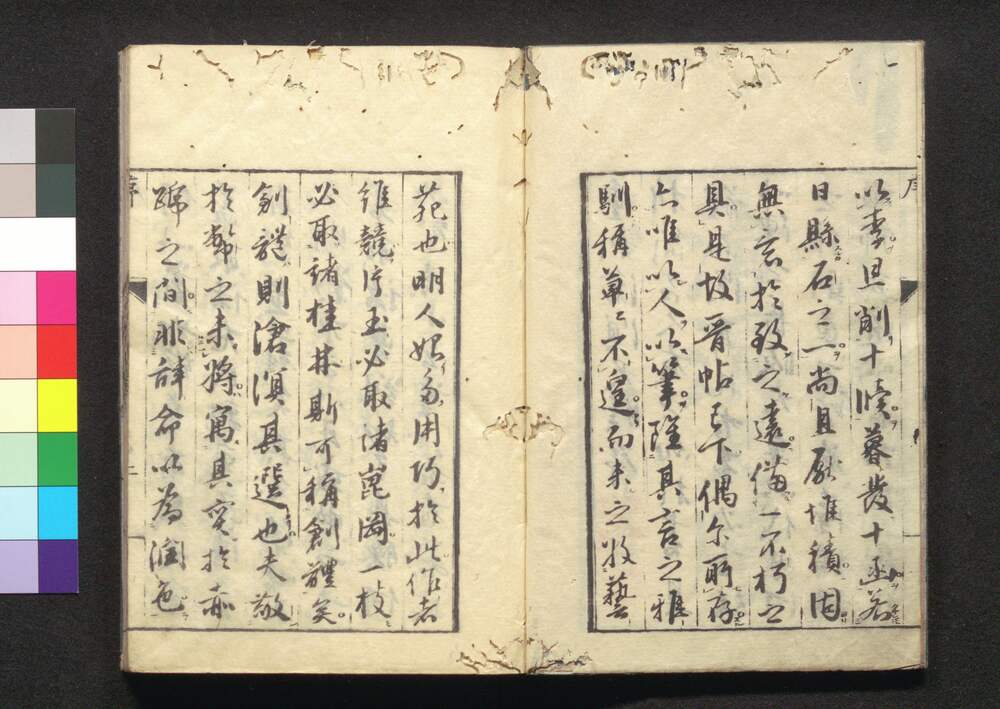 序
以素且削十牘暮發十函若
日縣石之一尚且厭堆積固
無意於致之遠備一不朽之
具是故晉帖已下偶尔所存
亦唯以人以筆雖其言之雅
馴稱草々不遑而未之牧藝
苑也明人始多用巧於此作者
維競片玉必取諸崑岡一枝
必取諸桂林斯可稱創體矣
創體則滄溟其選也夫敵
於幣之未將寓其實於赤
蹄之間非辭命以為潤色
序
二